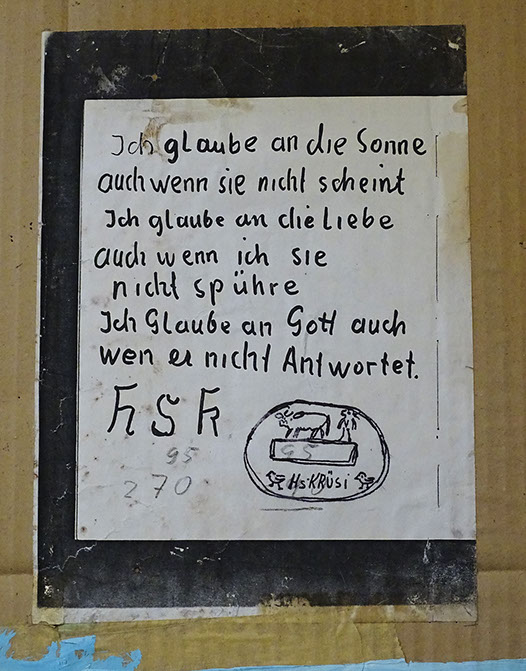 Ich glaube an die Sonne
auch wenn sie nicht scheint
Ich glaube an die Liebe
auch wenn ich sie
nicht spühre
Ich Glaube an Gott auch
wen er nicht Antwortet.
h s k
95
270
95
Hs KRÜSi